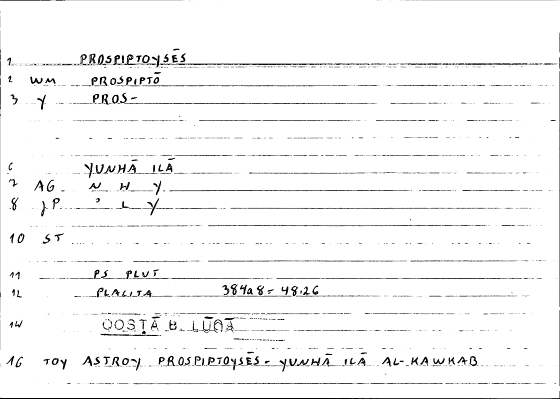 1 PROSPIPTOYSĒS
2 WM PROSPIPTŌ
3 Y PROS-
6 YUNHĀ ILĀ
7 AG N H Y
8 JP ʾ L Y
10 ST
11 PS PLUT
12 PLACITA 384a8 = 48.26
14 QOSṬĀ B. LŪQĀ
16 TOY ASTROY PROSPIPTOYSĒS - YUNHĀ ILĀ AL-KAWKAB